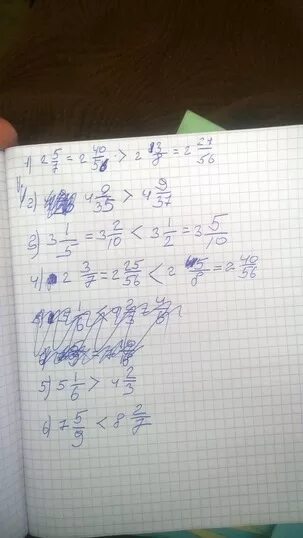 1) 2 5/7 = 2 40/56 > 2 3/8 = 2 27/56
2) 4 9/35 > 4 9/37
3) 3 1/5 = 3 2/10 < 3 1/2 = 3 5/10
4) 2 3/7 = 2 25/56 < 2 5/8 = 2 40/56
5) 5 1/6 > 4 2/3
6) 7 5/9 < 8 2/7